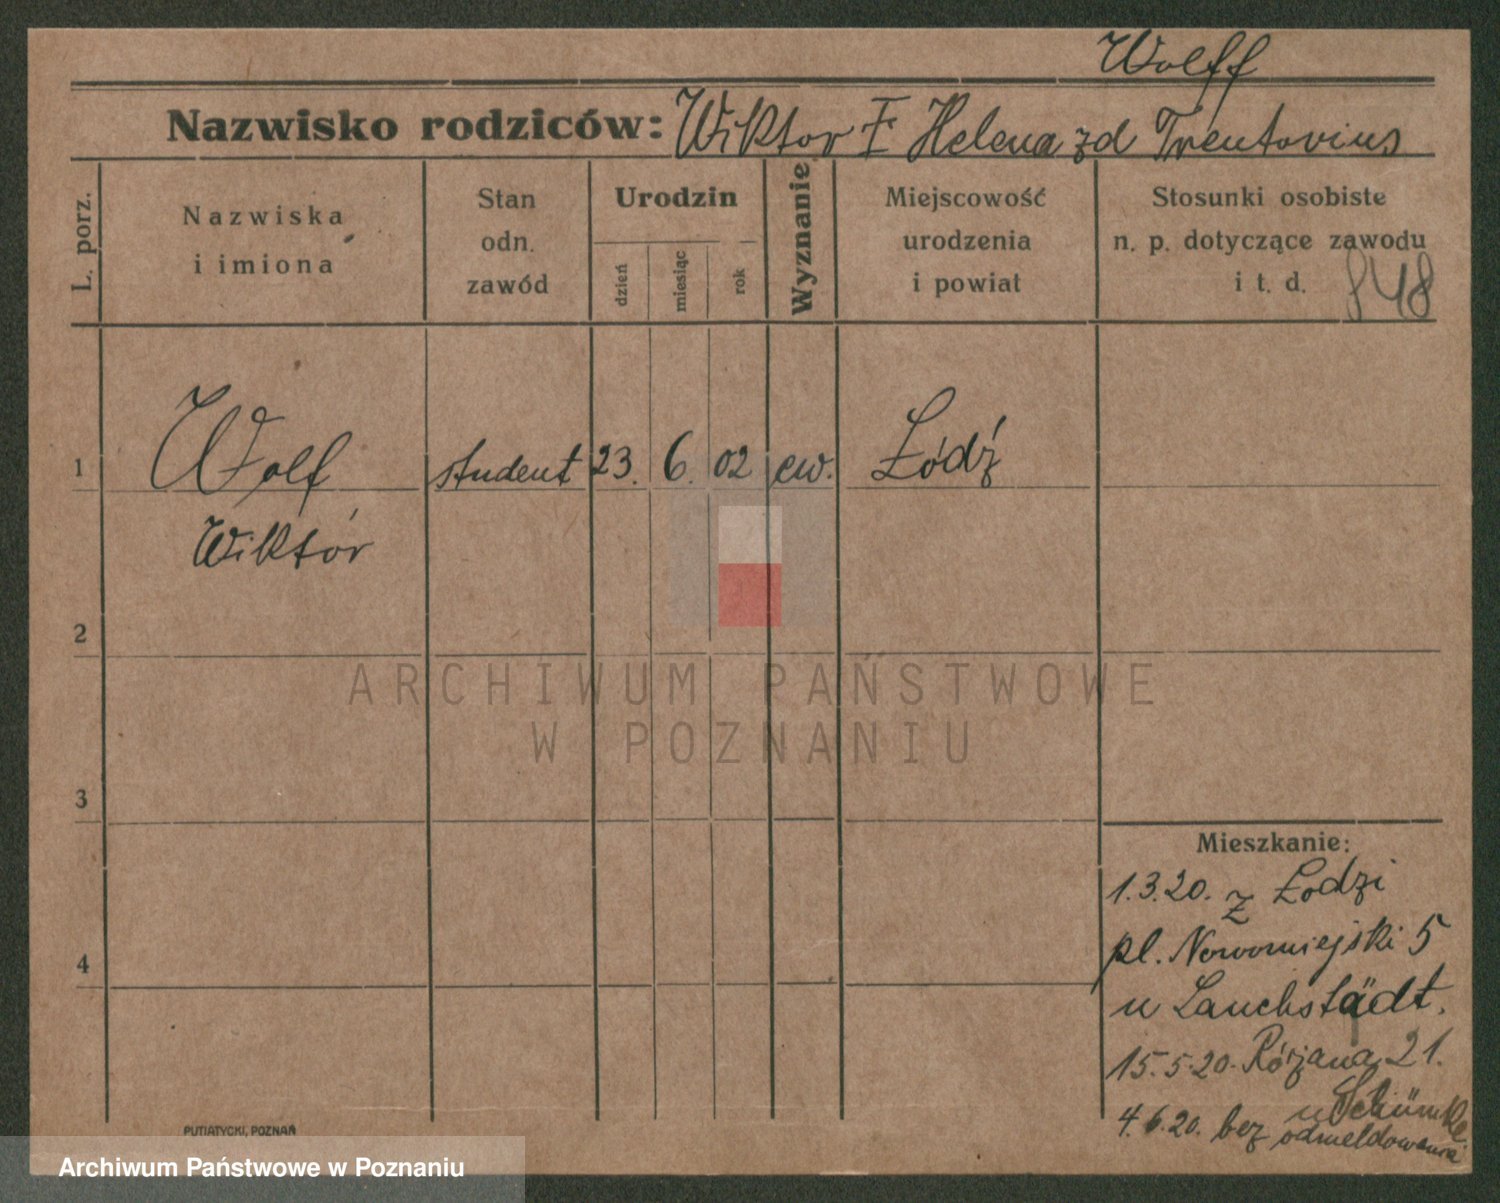 Wolff
Nazwisko rodziców: Wiktor I Helena zd Trentovius
L. porz.
Nazwiska
i imiona
Stan
odn.
zawód
Urodzin
dzień
miesiąc
rok
Wyznanie
Miejscowość
urodzenia
i powiat
Stosunki osobiste
n. p. dotyczące zawodu
i t. d.
848
1 Wolf student 23. 6. 02 ew. Łódź
Wiktór
2
3
4
ARCHIWUM PAŃSTWOWE
W POZNANIU
Mieszkanie:
1.3.20. z Łodzi
pl. Nowomiejski 5
u Lauchstädt.
15.5.20. Różana 21.
u
4.6.20. bez odmeldowania
PUTIATYCKI, POZNAŃ
Archiwum Państwowe w Poznaniu